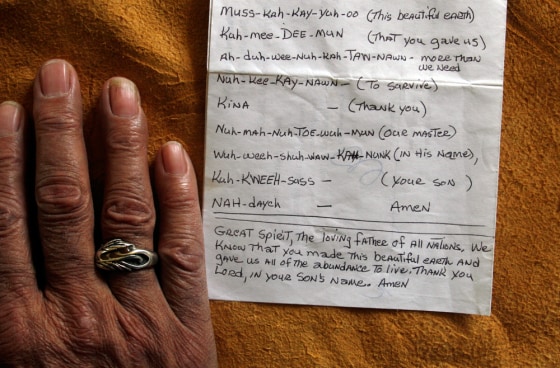 Muss-Kah-Kay-Yuh-oo (This beautiful earth)
Kah-mee-DEE-MUN (That you gave us)
Ah-duh-wee-Nuh-Kah-TAW-NAWN - more than
we need
Nuh-Kee-KAY-NAWN - (To survive)
KiNA - (Thank you)
Nuh-mah-Nuh-TOE-wuh-MUN (OUR MASTER)
Wuh-weeh-shuh-WAW- -NUNK (IN His NAME),
Kuh-KWEEH-sass - (YOUR SON)
NAH-daych - AMEN
GREAT Spirit, The loving father of All NATIONS, We
KNOW That you made This beautiful earth AND
gave us all of the abundance To live. THANK you
LORD, IN YOUR SON'S NAME.. AMEN